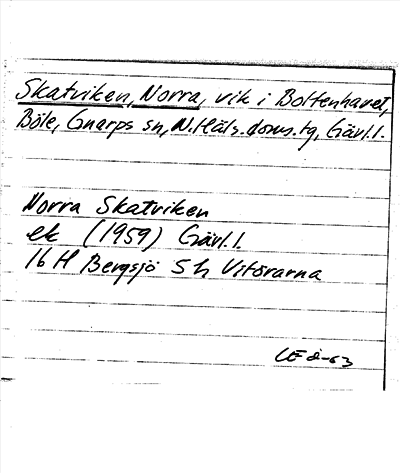 Skatviken, Norra, vik i Bottenhavet,
Böle, Gnarps sn, N. Häls. doms. tg, Gävl. l.
Norra Skatviken
ek (1959) Gävl. l.
16 H Bergsjö 5 h Vitörarna